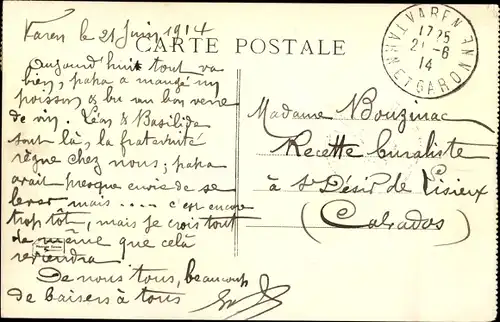 Varen le 21 Juin 1914
CARTE POSTALE
Aujourd'huit tout va
bien, papa a mangé un
poisson & bu un bon verre
de vin. Léon & Basilide
sont là, la fraternité
règne chez nous; papa
avait presque envie de se
lever mais .... c'est encore
trop tôt, mais je crois tout
de même que celà
reviendra
De nous tous, beaucoup
de baisers à tous
VAREN
TARN-ET-GARONNE
17 25
21-6
14
Madame Bouzinac
Recette buraliste
à St Désir de Lisieux
(Calvados)